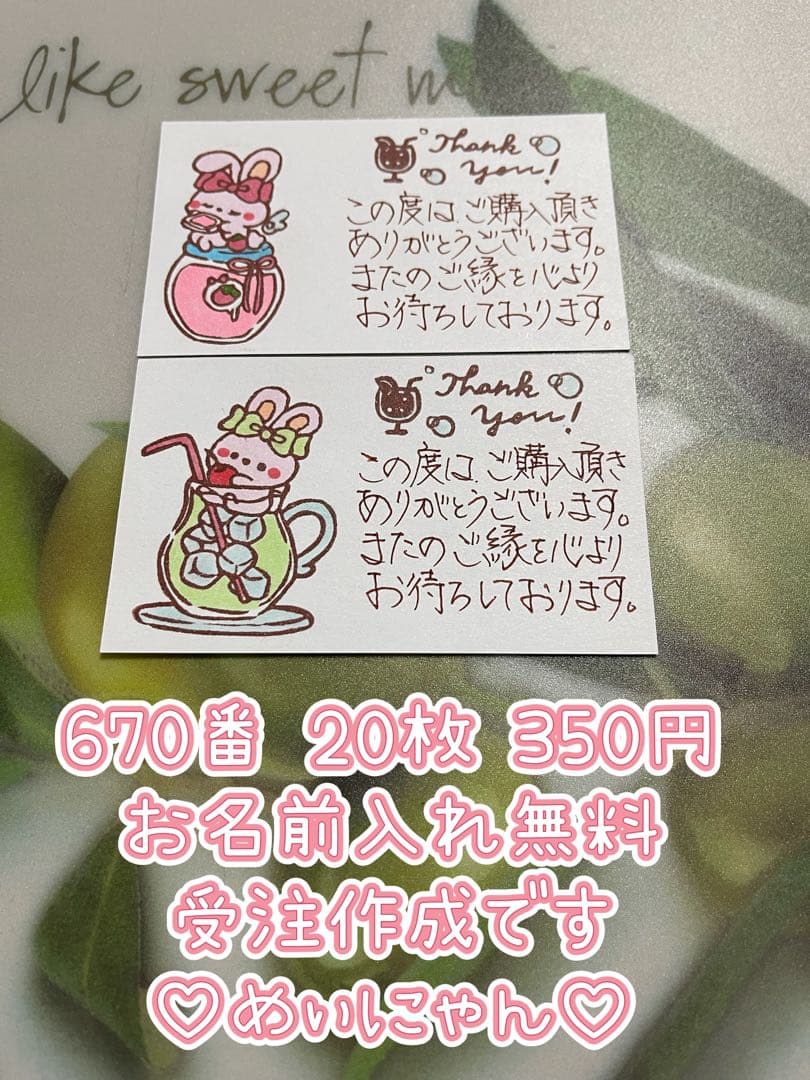 like sweet
Thank
you!
この度は、ご購入頂き
ありがとうございます。
またのご縁を心より
お待ちしております。
Thank
you!
この度は、ご購入頂き
ありがとうございます。
またのご縁を心より
お待ちしております。
670番 20枚 350円
お名前入れ無料
受注作成です
♡めぃにゃん♡